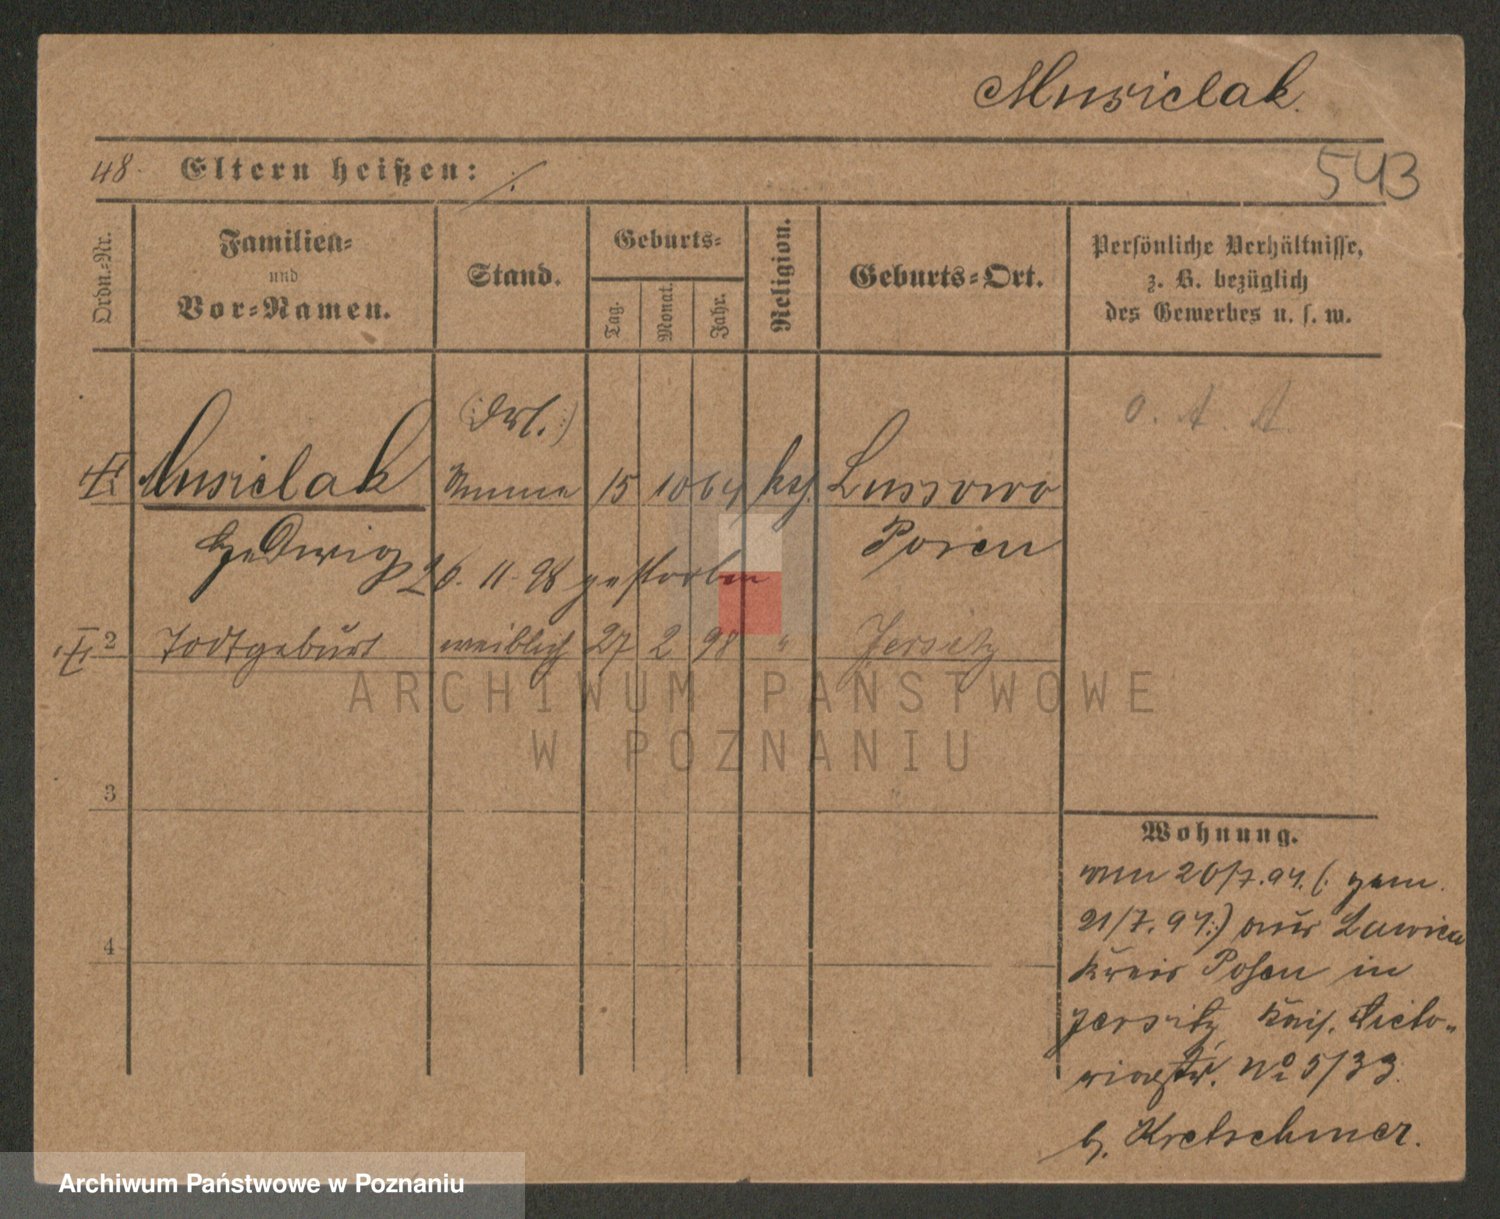 Musielak.
48. Eltern heißen: ./.
543
Ordn.-Nr.
Familien-
und
Vor-Namen.
Stand.
Geburts-
Tag.
Monat.
Jahr.
Religion.
Geburts-Ort.
Persönliche Verhältnisse,
z. B. bezüglich
des Gewerbes u. s. w.
Musielak Amme 15 10 64 kth. Lussowo
Hedwig Posen
26. 11. 98 gestorben
2 Todtgeburt weiblich 27 2 98 " Jersitz
ARCHIWUM PAŃSTWOWE
W POZNANIU
3
4
Wohnung.
20/7.94. (: gem.
21/7.94:) aus Lawica
Kreis Posen in
Jersitz Kais. Victo-
riastr. No 5/33.
b. Kretschmer.
Archiwum Państwowe w Poznaniu